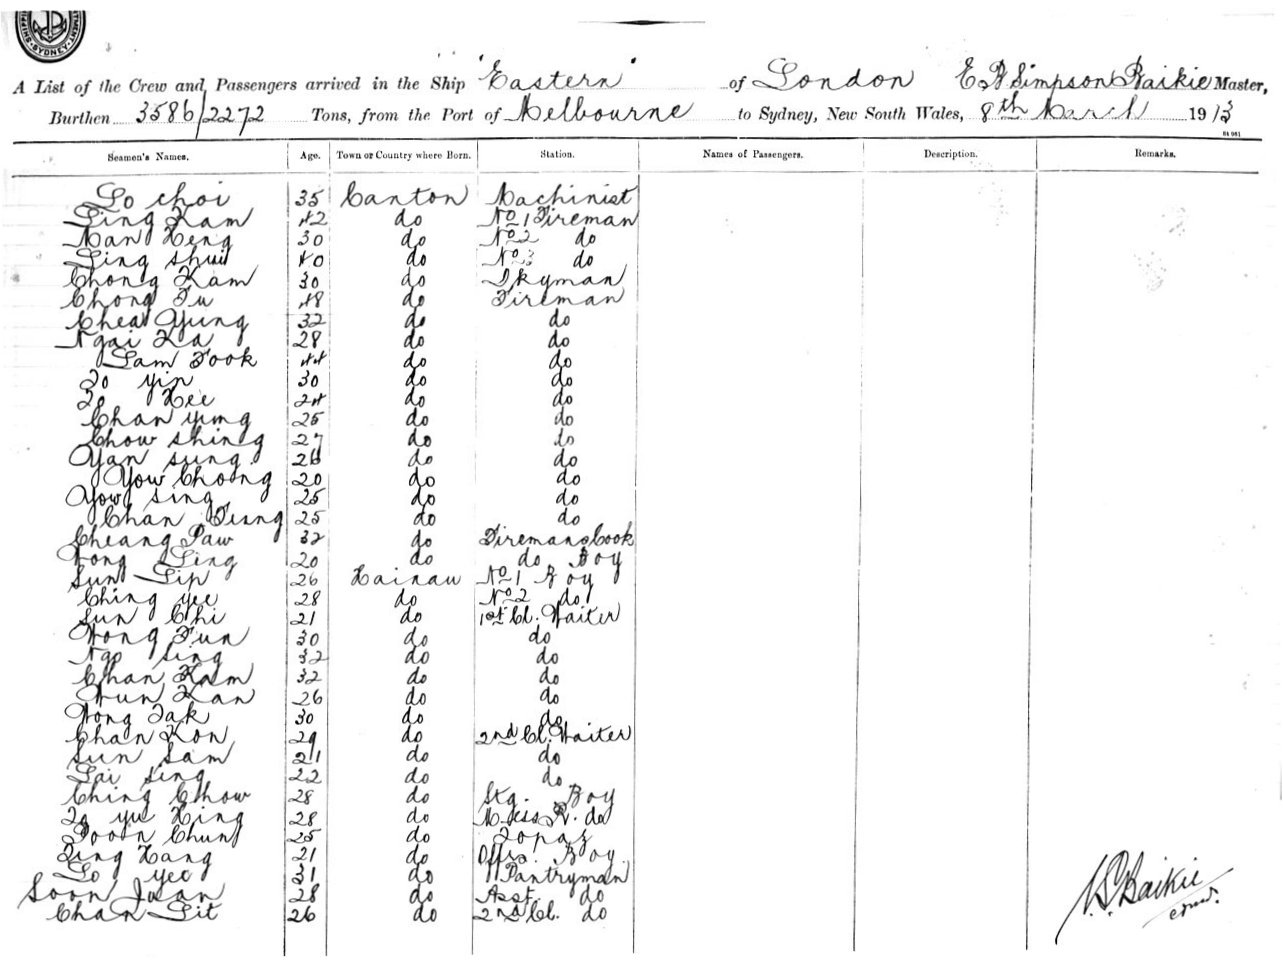 SYDNEY
A List of the Crew and Passengers arrived in the Ship "Eastern" of London E. Simpson Baikie Master,
Burthen 3586/2272 Tons, from the Port of Melbourne to Sydney, New South Wales, 8th March 1913
Seamen's Names. Age. Town or Country where Born. Station. Names of Passengers. Description. Remarks.
Lo choi 35 Canton Machinist
Ling Kam 42 do No 1 Fireman
Man Heng 30 do No 2 do
Ling shui 40 do No 3 do
Chong Kam 30 do
Chong Fu 48 do Fireman
Cheal Yung 32 do do
Ngai Ka 28 do do
Lam Fook 44 do do
To yin 30 do do
To Hee 24 do do
Chan yung 25 do do
Chow shing 27 do do
Yan sung 26 do do
Yow Choong 20 do do
Yow sing 25 do do
Chan 25 do do
Cheang Paw 32 do Firemans Cook
Wong Ling 20 do do Boy
Sun Lip 26 Hainau No 1 Boy
Ching yee 28 do No 2 do
Sun Chi 21 do 1st Cl. Waiter
Wong Fun 30 do do
Ngo sing 32 do do
Chan Kam 32 do do
Wun Kan 26 do do
Wong Tak 30 do do
Chan Kon 29 do 2nd Cl. Waiter
Sun Sam 21 do do
Lai sing 22 do do
Ching Chow 28 do Stg. Boy
To yu Hing 28 do Mess R. do
Poon Chun 25 do Topaz
Ting Hang 21 do Offrs. Boy
Lo yee 31 do Pantryman
Soon Juan 28 do Asst. do
Chan Lit 26 do 2nd Cl. do
Baikie